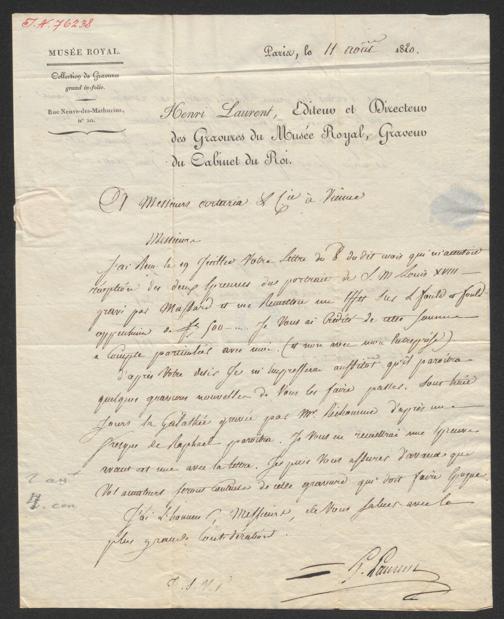 I.N. 76238
MUSÉE ROYAL.
Collection de Gravures
grand in-folio.
Rue Neuve-des-Mathurins,
n° 20.
Paris, le 11 août 1820.
Henri Laurent, Editeur et Directeur
des Gravures du Musée Royal, Graveur
du Cabinet du Roi.
A Messieurs Artaria & Cie à Vienne
Messieurs
J'ai Reçu le 29 Juillet Votre Lettre du 8 du dit mois qui m'
réception des deux Epreuves du portrait de S. M. Louis XVIII
gravé par Massard et me Remettre un Effet sur L Fould et Fould
oppenheim de 500 Je Vous ai Crédité de cette somme
à Compte particulier avec moi. (et non avec mon Entreprise)
d'après Votre désir Je m'empresserai aussitôt qu'il paroitra
quelques gravures nouvelles de Vous les faire passer. Sous huit
Jours la Galathée gravée par Mr. Richomme d'après une
fresque de Raphael paroitra. Je Vous en remettrai une Epreuve
avant et une avec la lettre. Je puis Vous assurer d'avance que
Vos amateurs seront contents de cette gravure qui doit faire Epoque.
J'ai L'honneur, Messieurs, de Vous saluer avec la
plus grande Considération.
H. Laurent
T. S. V. P.